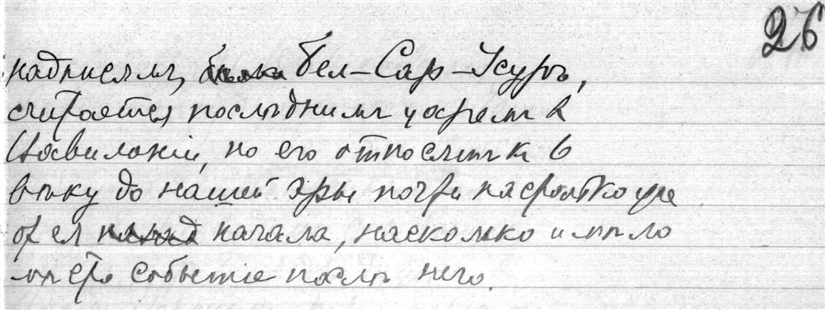 26
надписямъ, Бел-Сар-Усуръ,
считается последнимъ царемъ
Вавилоніи, но его относитъ к 6
вѣку до нашей эры почти настолько уже
от ея начала, насколько имѣло
мѣсто событіе послѣ него.